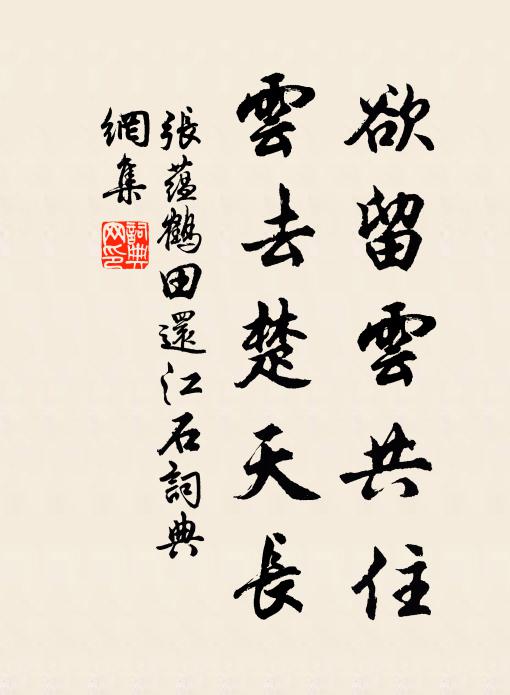 欲留雲共住
雲去楚天長
張蘊鶴田還江石詞典
網集
詞典
网印